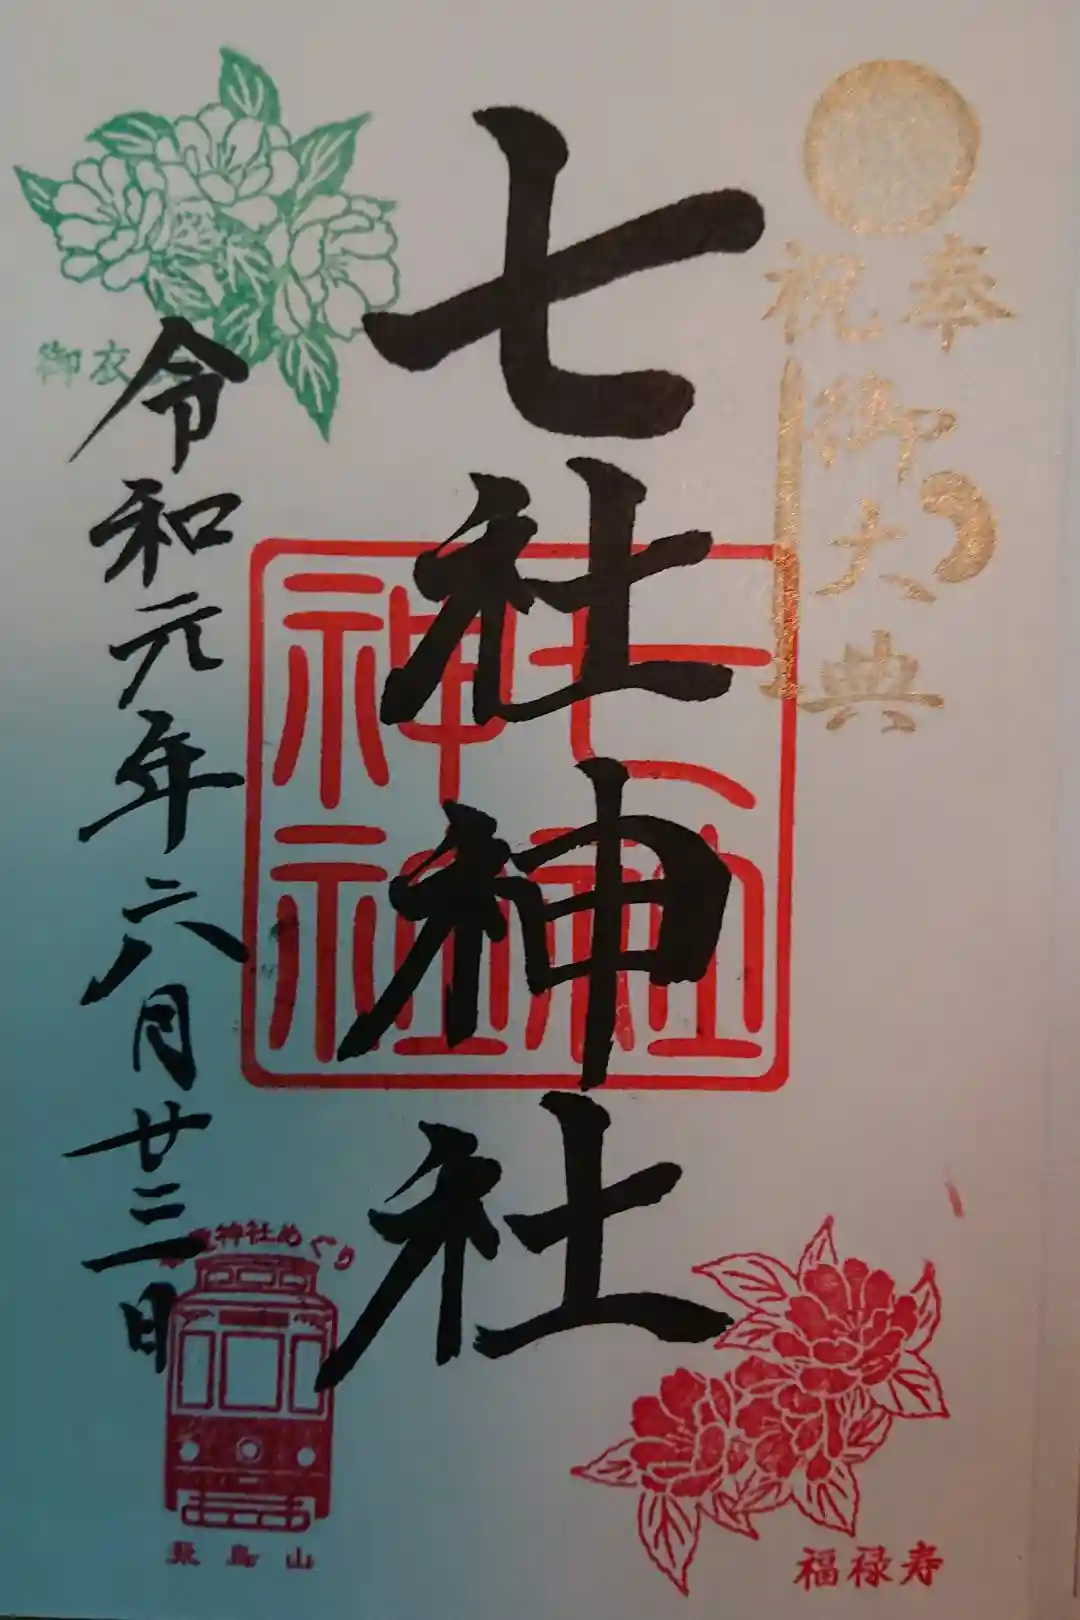 奉祝
御大典
七社神社
七社神社
令和元年六月廿三日
御衣
神社めぐり
飛鳥山
福禄寿